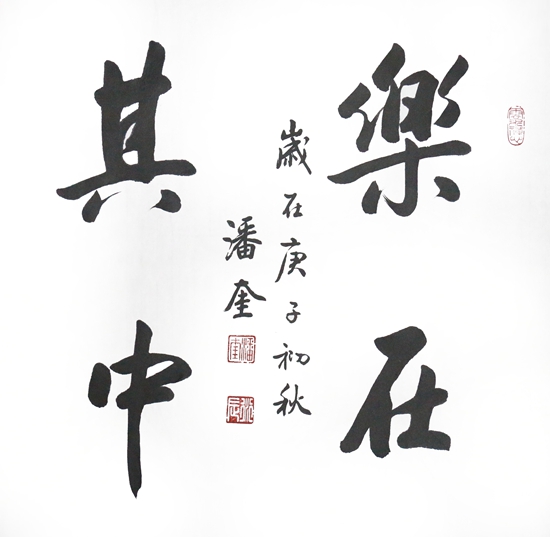 樂在
其中
歲在庚子初秋
潘奎